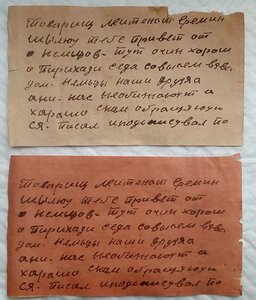 Товарищ леитенат Еремин
шылю тебе привет от
о немцов - тут очин хорош
о Прихади суда совысем взве
дом. немцы наши друзя
ани - нас необижают и
харашо снам обращяюит
ся: писал иподписувал по
Товарищ леитенат Еремин
шылю тебе привет от
о немцов - тут очин хорош
о Прихади суда совысем взве
дом. немцы наши друзя
ани - нас необижают и
харашо снам обращяюит
ся: писал иподписувал по